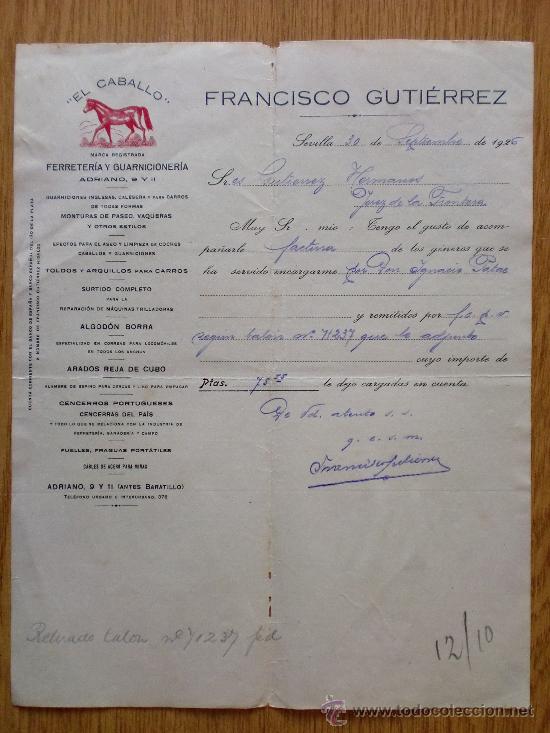 "EL CABALLO"
MARCA REGISTRADA
FERRETERÍA Y GUARNICIONERÍA
ADRIANO, 9 Y 11
GUARNICIONES INGLESAS, CALESERA Y PARA CARROS
DE TODAS FORMAS
MONTURAS DE PASEO, VAQUERAS
Y OTROS ESTILOS
EFECTOS PARA EL ASEO Y LIMPIEZA DE COCHES
CABALLOS Y GUARNICIONES
TOLDOS Y ARQUILLOS PARA CARROS
SURTIDO COMPLETO
PARA LA
REPARACIÓN DE MÁQUINAS TRILLADORAS
ALGODÓN BORRA
ESPECIALIDAD EN CORREAS PARA LOCOMÓVILES
EN TODOS LOS ANCHOS
ARADOS REJA DE CUBO
ALAMBRE DE ESPINO PARA CERCAS Y LISO PARA EMPACAR
CENCERROS PORTUGUESES
CENCERRAS DEL PAÍS
Y TODO LO QUE SE RELACIONA CON LA INDUSTRIA DE
FERRETERÍA, GANADERÍA Y CAMPO
FUELLES, FRAGUAS PORTÁTILES
CABLES DE ACERO PARA MINAS
ADRIANO, 9 Y 11 (ANTES BARATILLO)
TELÉFONO URBANO E INTERURBANO, 376
CUENTA CORRIENTE CON EL BANCO DE ESPAÑA Y BANCO ESPAÑOL DEL RÍO DE LA PLATA
A NOMBRE DE FRANCISCO GUTIÉRREZ
FRANCISCO GUTIÉRREZ
Sevilla 30 de Septiembre de 1926
Sres Gutierrez Hermanos
Jerez de la Frontera
Muy Sr. mío: Tengo el gusto de acom-
pañarle factura de los géneros que se
ha servido encargarme por Don Ignacio Palac
y remitidos por f.c. p.v.
segun talón nº 71237 que le adjunto
cuyo importe de
Ptas. 75.55 le dejo cargadas en cuenta.
De Vd. atento s.s.
q. e. s. m.
Francisco Gutierrez
Retirado talon nº 71237
12/10
todocoleccion.net